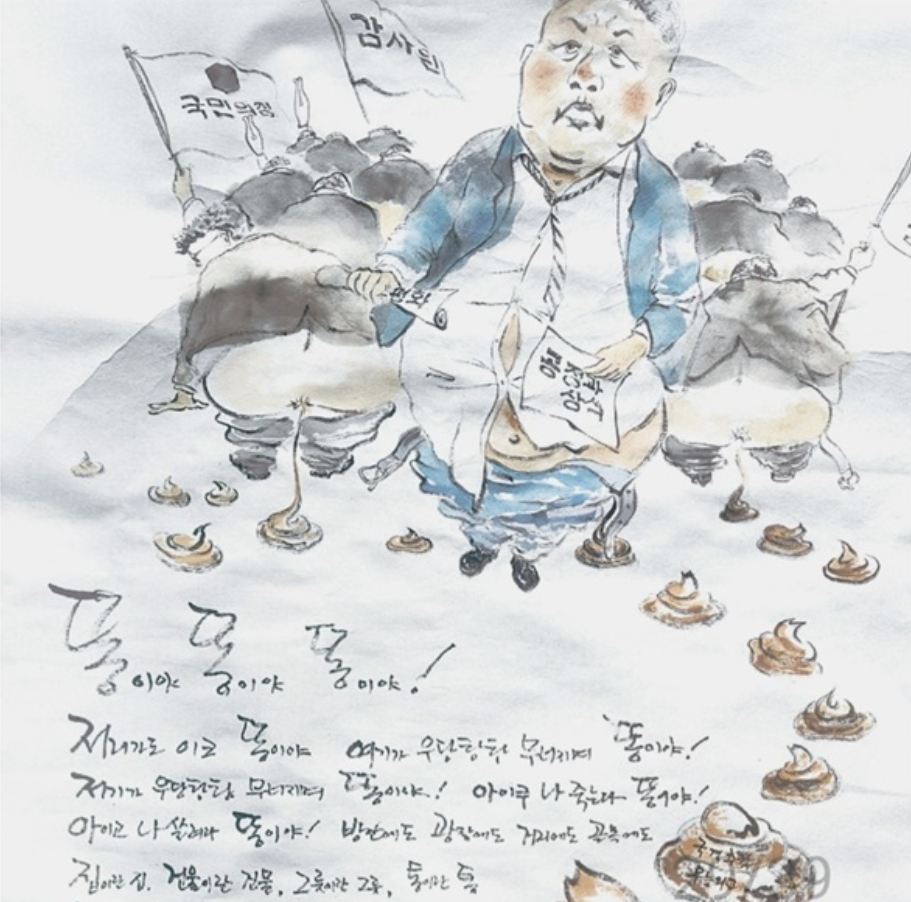 감사원
국민의정
평화
행정보고상
똥이야 똥이야 똥이야!
저리가도 이크 똥이야 여기가 우당탕탕 무너지며 똥이야!
저기가 우당탕탕 무너지며 똥이야! 아이쿠 나 죽는다 똥이야!
아이쿠 나 살려라 똥이야! 방안에도 광장에도 거리에도 골목에도
집이란 집, 건물이란 건물, 그릇이란 그릇, 틈이란 틈